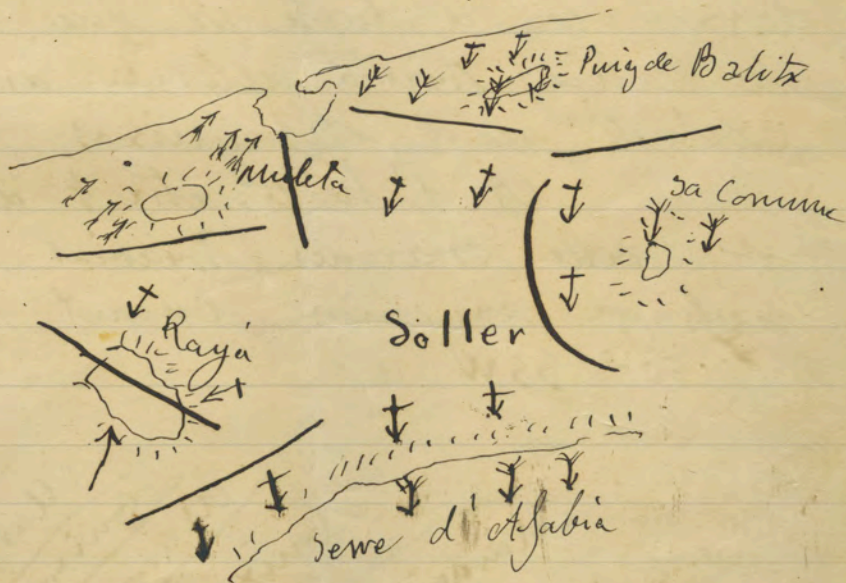 Puig de Balitx
Muleta
sa Comune
Rayá
Sóller
Serre d'Alfabia